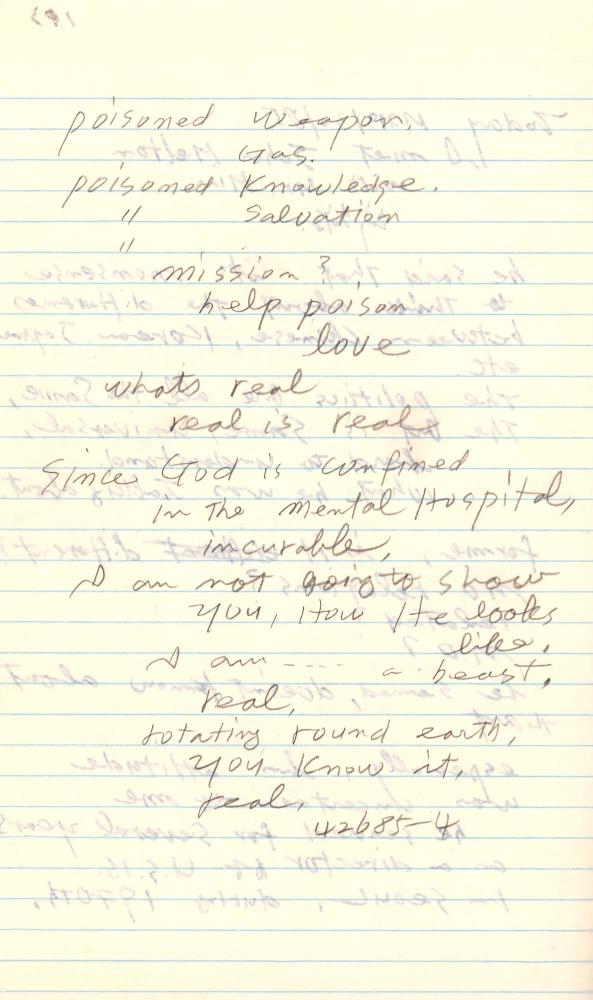 poisoned weapon.
Gas.
poisoned Knowledge.
" Salvation
"
mission?
help poison
love
whats real
real is real
Since God is confined
in the mental Hospital,
incurable,
I am not going to show
you, How He looks
like.
I am ---- a beast.
real,
rotating round earth,
you know it,
real,
42685-4